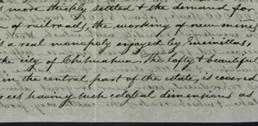 more thickly settled & the demand for
of railroads, the working of new mines
is a real monopoly enjoyed by
the city of Chihuahua. The lofty & beautiful
in the central part of the state, is covered
trees having such colossal dimensions as